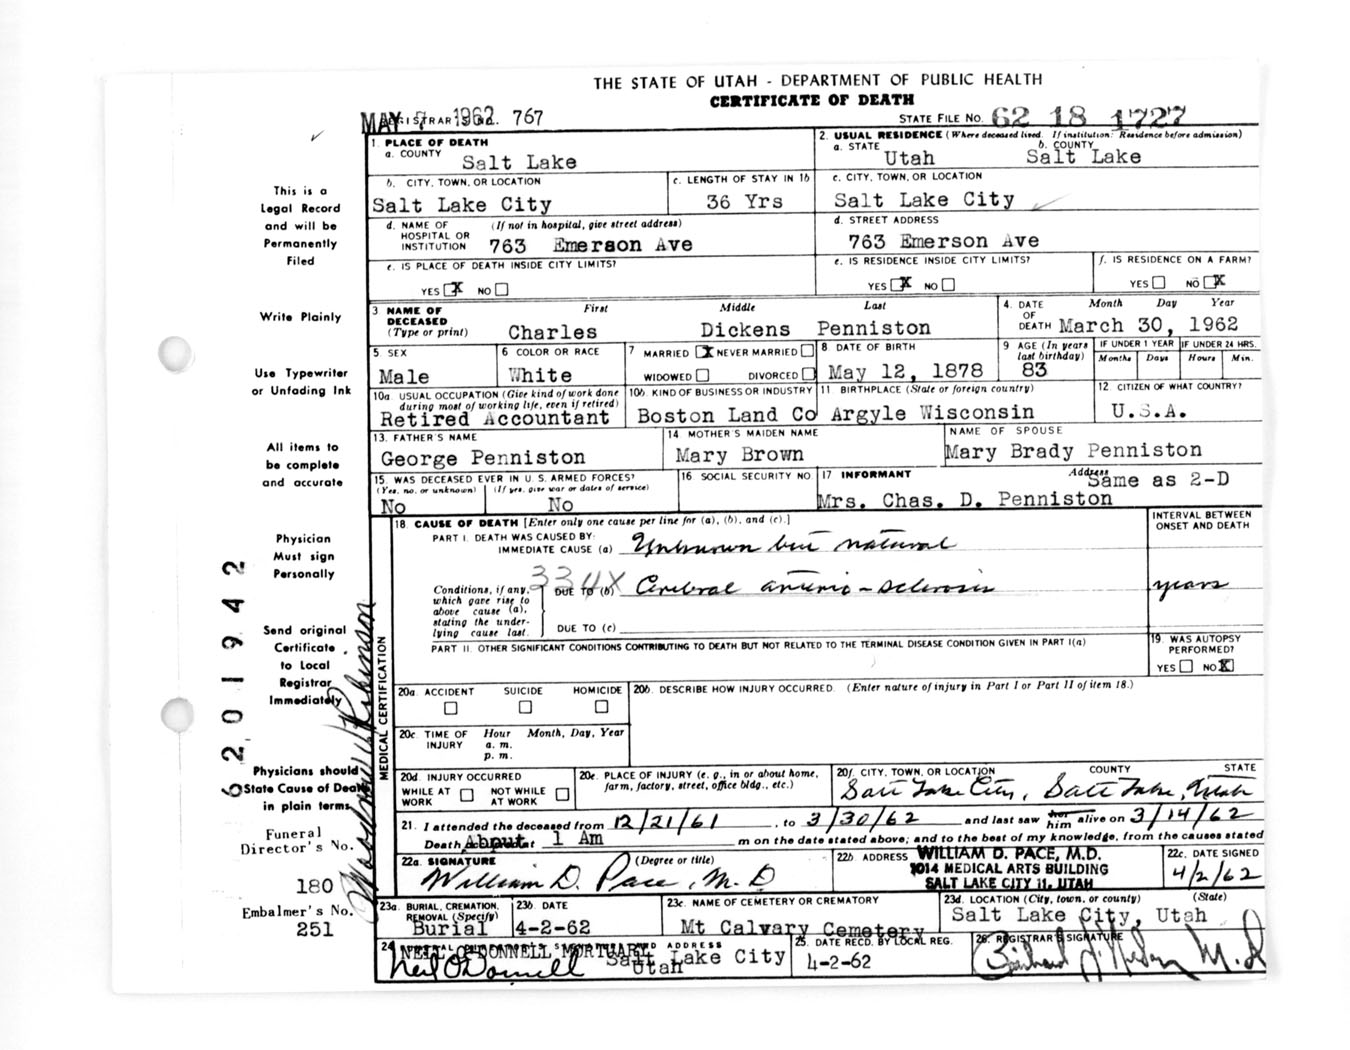 THE STATE OF UTAH - DEPARTMENT OF PUBLIC HEALTH
CERTIFICATE OF DEATH
MAY 7 1962 REGISTRAR'S NO. 767
STATE FILE NO. 62 18 1727
1. PLACE OF DEATH
a. COUNTY Salt Lake
2. USUAL RESIDENCE (Where deceased lived. If institution: Residence before admission)
a. STATE Utah b. COUNTY Salt Lake
b. CITY, TOWN, OR LOCATION Salt Lake City
c. LENGTH OF STAY IN 1b 36 Yrs
c. CITY, TOWN, OR LOCATION Salt Lake City
d. NAME OF HOSPITAL OR INSTITUTION (If not in hospital, give street address) 763 Emerson Ave
d. STREET ADDRESS 763 Emerson Ave
e. IS PLACE OF DEATH INSIDE CITY LIMITS? YES X NO
e. IS RESIDENCE INSIDE CITY LIMITS? YES X NO
f. IS RESIDENCE ON A FARM? YES NO X
3 NAME OF DECEASED (Type or print) First Middle Last
Charles Dickens Penniston
4. DATE OF DEATH Month Day Year
March 30, 1962
5 SEX Male
6 COLOR OR RACE White
7 MARRIED X NEVER MARRIED
WIDOWED DIVORCED
8 DATE OF BIRTH May 12, 1878
9 AGE (In years last birthday) 83
IF UNDER 1 YEAR Months Days
IF UNDER 24 HRS. Hours Min.
10a. USUAL OCCUPATION (Give kind of work done during most of working life, even if retired) Retired Accountant
10b. KIND OF BUSINESS OR INDUSTRY Boston Land Co
11 BIRTHPLACE (State or foreign country) Argyle Wisconsin
12 CITIZEN OF WHAT COUNTRY? U.S.A.
13. FATHER'S NAME George Penniston
14 MOTHER'S MAIDEN NAME Mary Brown
NAME OF SPOUSE Mary Brady Penniston
15. WAS DECEASED EVER IN U. S. ARMED FORCES?
(Yes, no, or unknown) No
(If yes, give war or dates of service) No
16 SOCIAL SECURITY NO.
17 INFORMANT Mrs. Chas. D. Penniston
Address Same as 2-D
18. CAUSE OF DEATH [Enter only one cause per line for (a), (b), and (c).]
INTERVAL BETWEEN ONSET AND DEATH
PART I. DEATH WAS CAUSED BY:
IMMEDIATE CAUSE (a) Unknown but natural
334X
Conditions, if any, which gave rise to above cause (a), stating the underlying cause last.
DUE TO (b) Cerebral arterio-sclerosis years
DUE TO (c)
PART II. OTHER SIGNIFICANT CONDITIONS CONTRIBUTING TO DEATH BUT NOT RELATED TO THE TERMINAL DISEASE CONDITION GIVEN IN PART I(a)
19. WAS AUTOPSY PERFORMED? YES NO X
MEDICAL CERTIFICATION
20a. ACCIDENT SUICIDE HOMICIDE
20b. DESCRIBE HOW INJURY OCCURRED. (Enter nature of injury in Part I or Part II of item 18.)
20c. TIME OF INJURY Hour a. m. p. m. Month, Day, Year
20d. INJURY OCCURRED WHILE AT WORK NOT WHILE AT WORK
20e. PLACE OF INJURY (e. g., in or about home, farm, factory, street, office bldg., etc.)
20f. CITY, TOWN, OR LOCATION COUNTY STATE
Salt Lake City, Salt Lake, Utah
21. I attended the deceased from 12/21/61, to 3/30/62 and last saw her him alive on 3/14/62
Death occurred at About 1 Am m on the date stated above; and to the best of my knowledge, from the causes stated
22a. SIGNATURE (Degree or title) William D. Pace, M.D
22b. ADDRESS WILLIAM D. PACE, M.D.
1014 MEDICAL ARTS BUILDING
SALT LAKE CITY 11, UTAH
22c. DATE SIGNED 4/2/62
23a. BURIAL, CREMATION, REMOVAL (Specify) Burial
23b. DATE 4-2-62
23c. NAME OF CEMETERY OR CREMATORY Mt Calvary Cemetery
23d. LOCATION (City, town, or county) (State) Salt Lake City, Utah
24 NEIL O'DONNELL MORTUARY ADDRESS Salt Lake City Utah
Neil O'Donnell
25. DATE RECD. BY LOCAL REG. 4-2-62
26. REGISTRAR'S SIGNATURE
M.D
This is a
Legal Record
and will be
Permanently
Filed
Write Plainly
Use Typewriter
or Unfading Ink
All items to
be complete
and accurate
Physician
Must sign
Personally
Send original
Certificate
to Local
Registrar
Immediately
Physicians should
State Cause of Death
in plain terms
Funeral
Director's No.
180
Embalmer's No.
251
6201942
Robinson